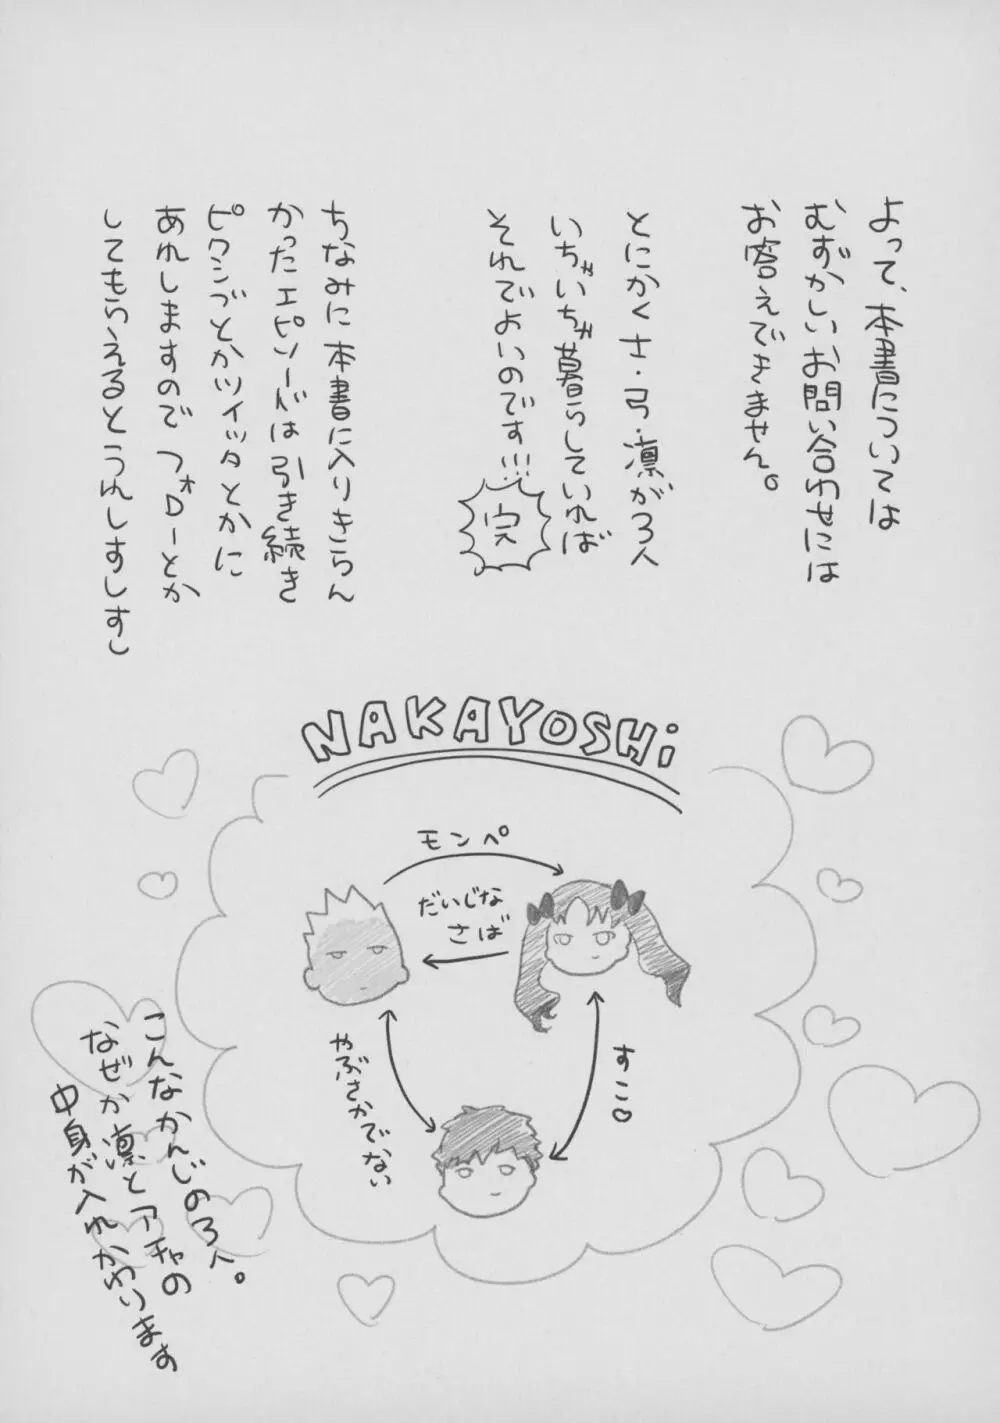 よって、本書については
むずかしいお問い合わせには
お答えできません。
とにかく士・弓・凛が3人
いちゃいちゃ暮らしていれば
それでよいのです!!!
完
ちなみに本書に入りきらん
かったエピソードは引き続き
ピクシブとかツイッタとかに
あれしますので フォローとか
してもらえるとうれしすしすし
NAKAYOSHi
モンペ
だいじな
さば
やぶさかでない
すこ♡
こんなかんじの3人。
なぜか凛とアチャの
中身が入れかわります